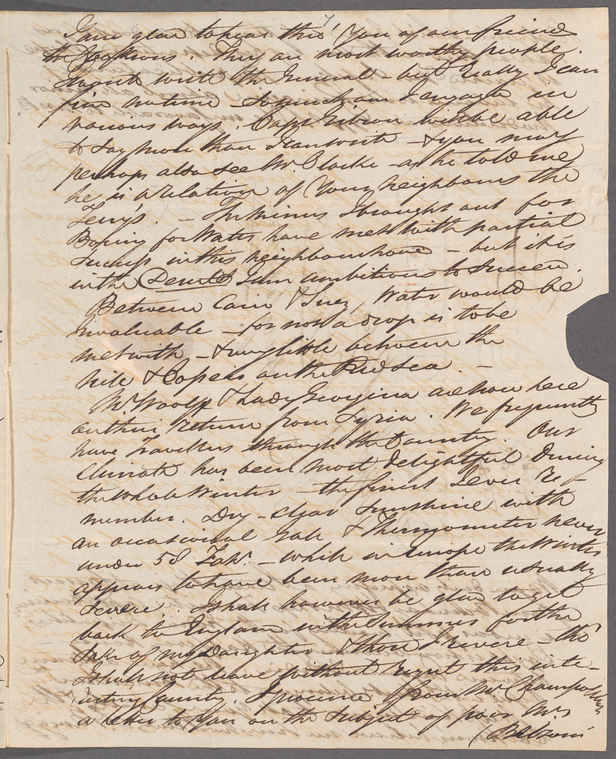 I was glad to hear thro' You of our friends
the Jacksons. They are most worthy people.
with the General - but really I can
find no time - So much am I engaged in
various ways. Capt Gibson will be able
to say more than I can write - & you may
perhaps also see Mr. Clarke - as he told me
he is a relation of Your Neighbours the
Terrys. - The Miners I brought out for
Boring for Water have met with partial
success in this neighbourhood - but it is
in the Desert I am ambitious to succeed.
Between Cairo & Suez, Water would be
invaluable - for now a drop is to be
met with - & very little between the
Nile & Coseir on the Red Sea. -
Mr Woolff & Lady Georgina are now here
on their return from Syria. We frequently
have travellers through the Country. Our
Climate has been most delightful during
the whole Winter - the finest I ever re-
member. Dry - clear sunshine with
an occasional gale & Thermometer never
under 58 Fah. - while in Europe the Winter
appears to have been more than usually
severe. I shall however be glad to get
back to England in the Summer for the
sake of my Daughter & those I revere - tho'
I shall not leave without regret this inte-
resting Country. I procured from Mr Champollion
a letter to You on the subject of poor Mrs
Belzoni